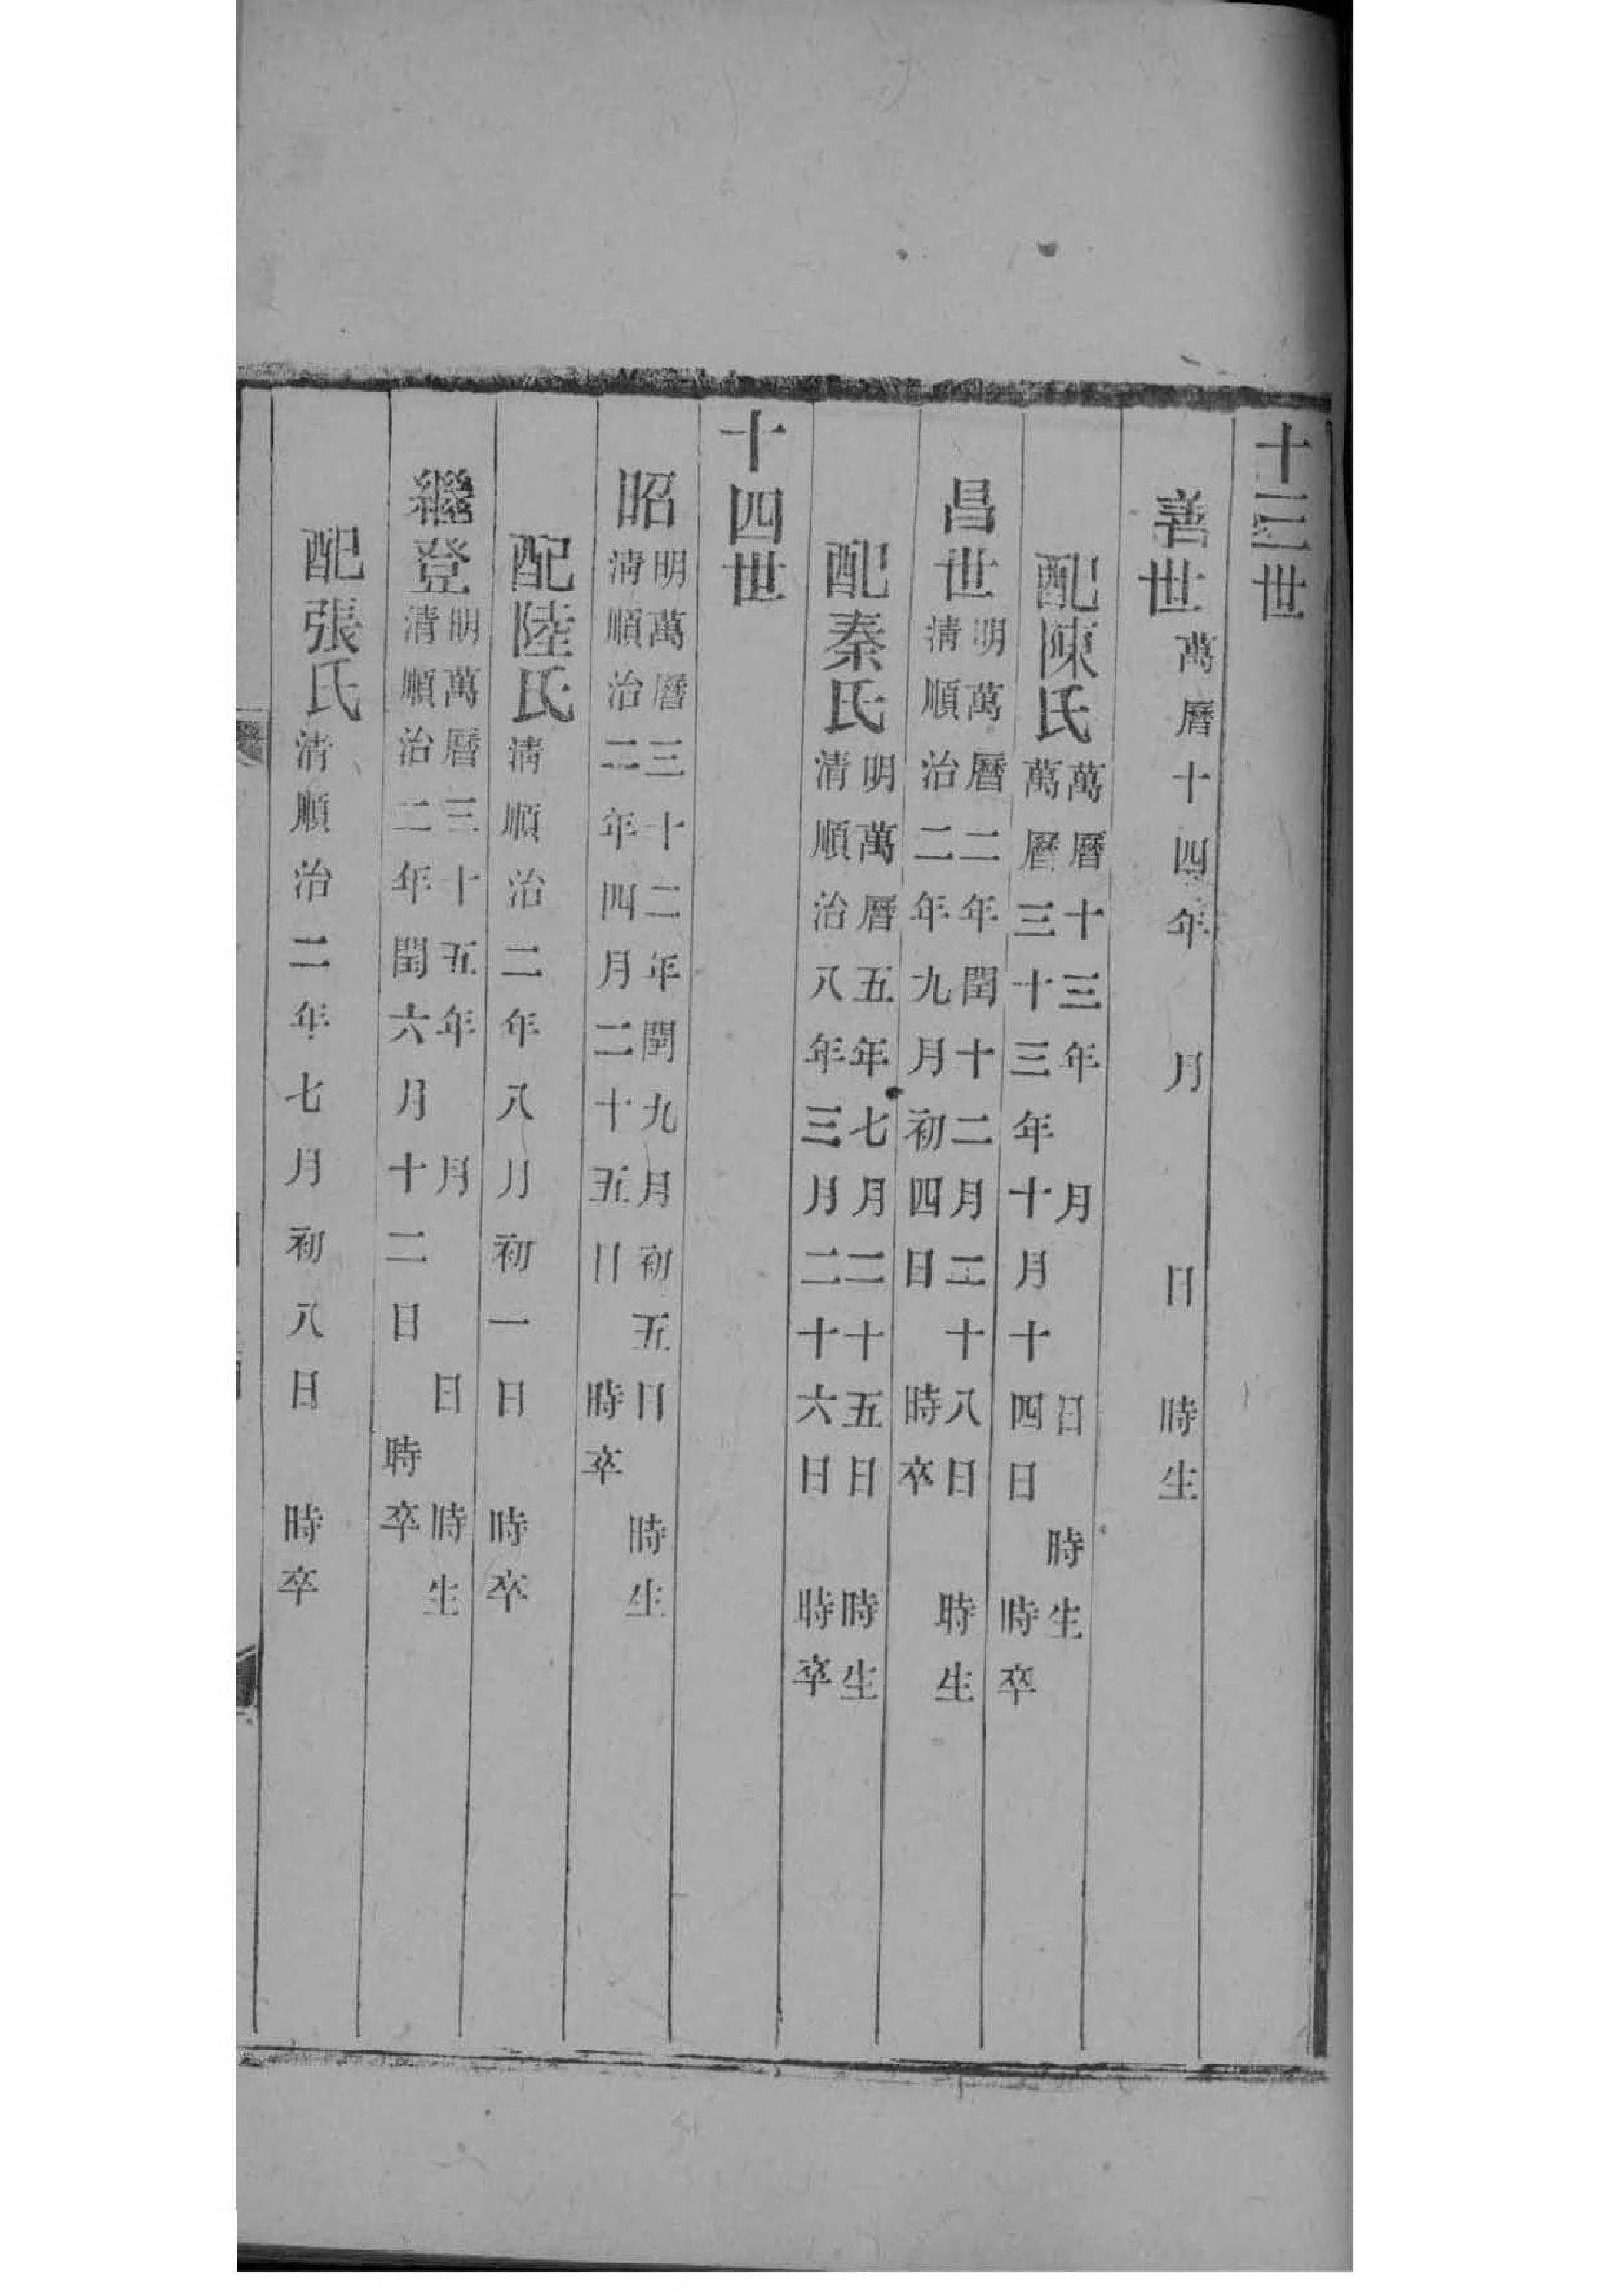 十三世
善世萬曆十四年月日時生
配陳氏萬曆十三年月日時生
萬曆三十三年十月十四日時卒
昌世明萬曆二年閏十二月二十八日時生
清順治二年九月初四日時卒
配秦氏明萬曆五年七月二十五日時生
清順治八年三月二十六日時卒
十四世
昭明萬曆三十二年閏九月初五日時生
清順治二年四月二十五日時卒
配陸氏清順治二年八月初一日時卒
繼登明萬曆三十五年月日時生
清順治二年閏六月十二日時卒
配張氏清順治二年七月初八日時卒